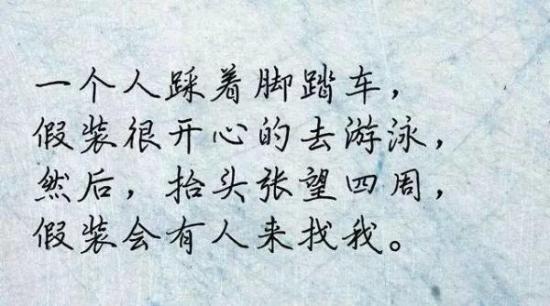 一个人踩着脚踏车，
假装很开心的去游泳，
然后，抬头张望四周，
假装会有人来找我。